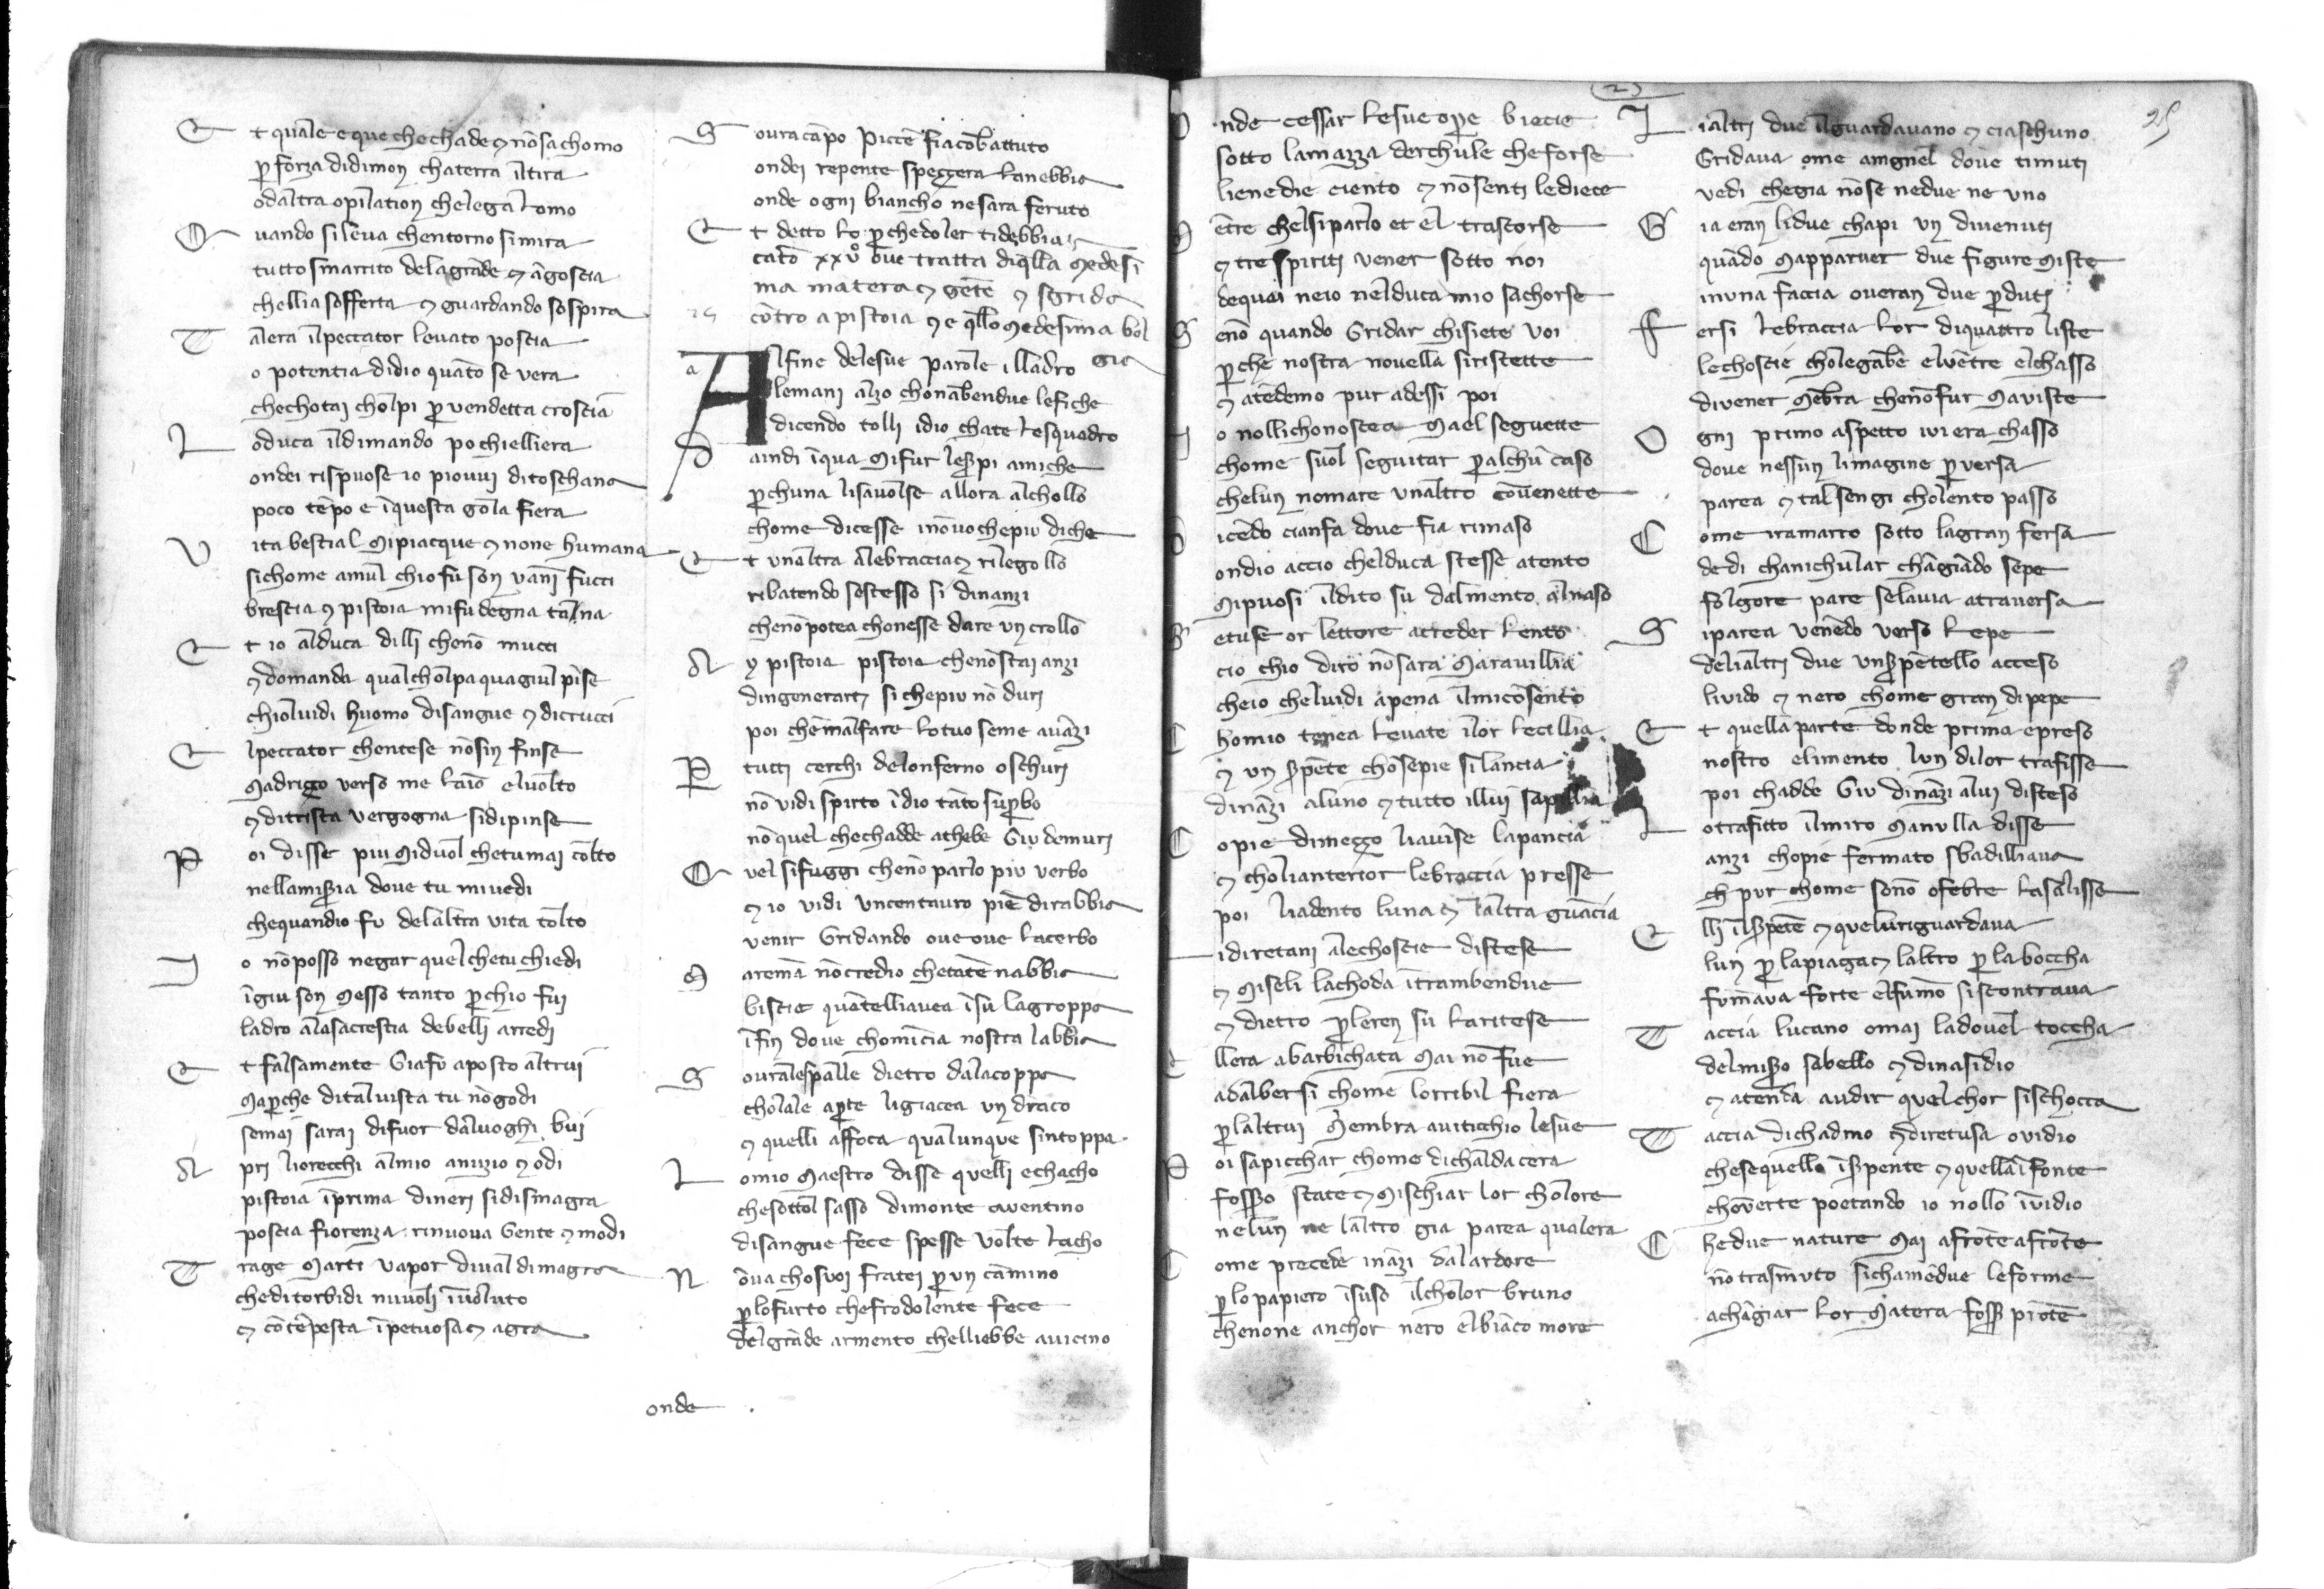 Et quale e que che chade & nō sa chomo
ꝑ forza di dimon chaterra il tira
o daltra opilation che lega lomo
Quando si leva chentorno si mira
tutto smarrito dela grāde āgoscia
chellia sofferta & guardando sospira
Tal era il peccator levato poscia
o potentia di dio quāto se vera
che chotai cholpi ꝑ vendetta croscia
Lo duca il dimando po chi elli era
ondei rispuose io piovvi di toschana
poco tēpo e ī questa gola fiera
Vita bestial mi piacque & none humana
si chome a mul chio fu son vāni fucci
bestia & pistoia mi fu degna tana
Et io al duca dilli che nō mucci
& domanda qual cholpa qua giul pīse
chiol vidi huomo di sangue & di crucci
El peccator chentese nō sin finse
Ma drizo verso me laīo el volto
& di trista vergogna si dipinse
Poi disse piu mi duol che tu mai colto
nella misꝑia dove tu mi vedi
che quandio fu delaltra vita tolto
Io nō posso negar quel che tu chiedi
ī giu son messo tanto ꝑ chio fui
ladro ala sacrestia de belli arredi
Et falsamente gia fu aposto altrui
Ma ꝑche di tal vista tu nō godi
se mai sarai di fuor da luoghi bui
Apri li orecchi al mio anuzio & odi
pistoia ī prima di neri si dismagra
poscia fiorenza rinuova gente & modi
Trage marti vapor di val di magra
che di torbidi nuvoli īvoluto
& cō tēpesta īpetuosa & agra
Soura cāpo piccē fia cōbattuto
ondei repente spezzera la nebbia
onde ogni biancho ne sara feruto
Et detto lo ꝑche doler ti debbia
cāto xxvº ove tratta di q̄lla medesi
ma matera & gēte & sgrida
25 cōtro a pistoia & e q̄llo medesima bol
gia
Al fine dele sue parole il ladro
le mani alzo chon ābendue le fiche
dicendo tolli idio cha te le squadro
Da indi ī qua mi fur le sꝑpi amiche
ꝑ chuna li savolse allora al chollo
chome dicesse i nō vo che piu diche
Et unaltra ale braccia & rilegollo
ribatendo se stesso si dinanzi
che nō potea chonesse dare un crollo
Ay pistoia pistoia che nō stai anzi
dingenerarti si che piu nō duri
poi chē mal fare lo tuo seme avāzi
P tutti cerchi delonferno oschuri
nō vidi spirto ī dio tāto suꝑbo
nō quel che chadde a thebe giu de muri
Quel si fuggi che nō parlo piu verbo
& io vidi un centauro piē di rabbia
venir gridando ove ove lacerbo
Marema nō credio che tāte nabbia
biscie quāte lli avea ī su la groppa
īfin dove chomīcia nostra labbia
Soura le spalle dietro dala coppa
cholale aꝑte li giacea un draco
& quelli affoca qualunque sintoppa
Lo mio maestro disse quelli e chacho
che sottol sasso di monte aventino
di sangue fece spesse volte lacho
Nō va cho suoi fratei ꝑ un camino
ꝑ lo furto che frodolente fece
del grāde armento chelliebbe a vicino
onde
Onde cessar le sue oꝑe biecie
sotto la mazza derchule che forse
liene die ciento & nō senti le diece
Mētre chel si parlo et el trascorse
& tre spiriti vener sotto noi
de quai ne io nel duca mio sachorse
Se nō quando gridar chi siete voi
ꝑ che nostra novella si ristette
& atēdemo pur ad essi poi
Io no lli chonoscea ma el seguette
chome suol seguitar ꝑ alchū caso
chelun nomare unaltro cōvenette
Dicēdo cianfa dove fia rimaso
ondio accio chel duca stesse atento
mi puosi il dito su dal mento al naso
Se tu se or lettore a creder lento
cio chio diro nō sara maravillia
che io chel vidi a pena il mi cōsento
Chomio tenea levate ī lor le cillia
& un sꝑpēte chō sepie si lancia
dināzi a luno & tutto allui sapillia
Co pie di mezzo li avīse la pancia
& cholianterior le braccia presse
poi li adento luna & laltra guācia
Li diretani ale choscie distese
& miseli la choda ītrambendue
& dietro ꝑ le ren su la ritese
Ellera abarbichata mai nō fue
ad alber si chome lorribil fiera
ꝑ laltrui membra aviticchio le sue
Poi sapicchar chome di chalda cera
fosseo state & mischiar lor cholore
ne lun ne laltro gia parea qualera
Come precede ināzi dalardore
ꝑ lo papiero īsuso il cholor bruno
che none anchor nero el biāco more
Li altri due il guardavano & ciaschuno
gridava ome amgnel dove ti muti
vedi che gia nō se ne due ne uno
Gia eran li due chapi un divenuti
quādo mapparuer due figure miste
in una faccia overan due ꝑduti
Fersi le braccia lor di quattro liste
le choscie chole gābe el vētre el chasso
divener mēbra che nō fur ma viste
Ogni primo aspetto ivi era chasso
dove nessun limagine ꝑversa
parea & tal sen gi cholento passo
Come ramarro sotto la gran fersa
de di chanichular chāgiādo sepe
folgore pare se la via atraversa
Si parea venēdo verso lepe
deli altri due un sꝑpētello acceso
livido & nero chome gran di pepe
Et quella parte donde prima e preso
nostro elimento lun di lor trafisse
poi chadde giu dināzi a lui disteso
Lo trafitto il miro ma nulla disse
anzi cho pie fermato sbadilliava
ch pur chome sonō o febre lasalisse
Elli il sꝑpēte & que lui riguardava
lun ꝑ la piaga & laltro ꝑ la boccha
fumava forte el fūmo si scontrava
Taccia lucano omai la dovel toccha
del misꝑo sabello & di nasidio
& atenda audir quel chor si schocca
Taccia di chadmo & diretusa ovidio
che se quello ī sꝑpente & quella ī fonte
chōverte poetando io nollo īvidio
Che due nature mai a frōte a frōte
nō trasmuto si chamēdue le forme
a chāgiar lor matera fossꝑ prōte
25